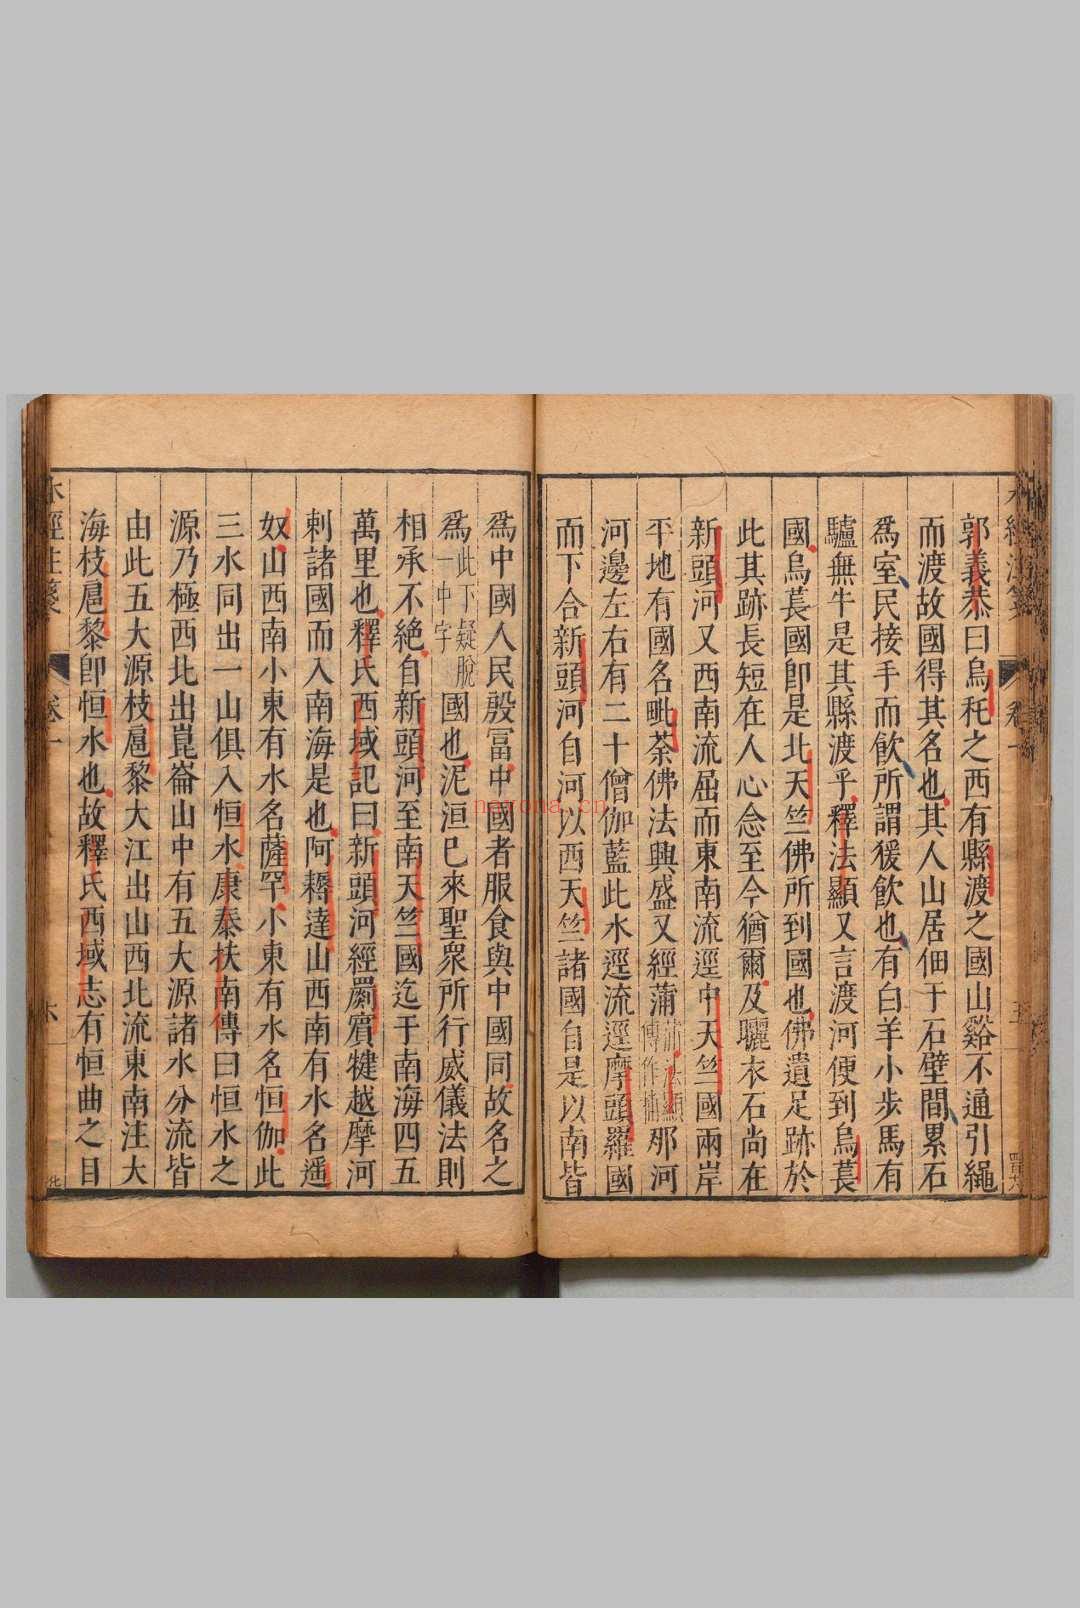 郭義恭曰烏秅之西有縣渡之國山谿不通引繩
而渡故國得其名也其人山居佃于石壁間累石
爲室民接手而飲所謂猨飲也有白羊小步馬有
驢無牛是其縣渡乎釋法顯又言渡河便到烏萇
國烏萇國卽是北天竺佛所到國也佛遺足跡於
此其跡長短在人心念至今猶爾及曬衣石尚在
新頭河又西南流屈而東南流逕中天竺國兩岸
平地有國名毗荼佛法興盛又經蒲蒲法顯傳作捕那河
河邊左右有二十僧伽藍此水逕流逕摩頭羅國
而下合新頭河自河以西天竺諸國自是以南皆
爲中國人民殷富中國者服食與中國同故名之
爲此下疑脫一中字國也泥洹已來聖衆所行威儀法則
相承不絶自新頭河至南天竺國迄于南海四五
萬里也釋氏西域記曰新頭河經罽賓犍越摩河
剌諸國而入南海是也阿耨達山西南有水名遥
奴山西南小東有水名薩罕小東有水名恒伽此
三水同出一山俱入恒水康泰扶南傳曰恒水之
源乃極西北出崑崙山中有五大源諸水分流皆
由此五大源枝扈黎大江出山西北流東南注大
海枝扈黎卽恒水也故釋氏西域志有恒曲之目
水經注箋
卷一
六
nayona.cn